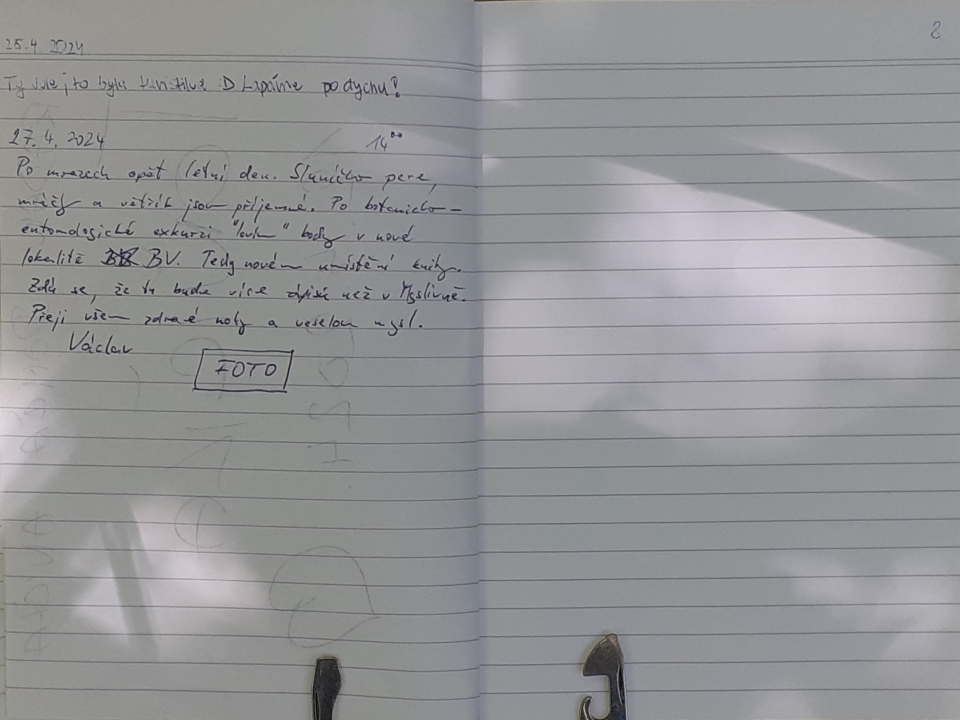 8
25.4. 2024
Ty jsi, to byla turistika :D Lapáme po dychu!
27.4. 2024 14⁰⁰
Po mrazech opět letní den. Sluníčko pere,
mráčky a větřík jsou příjemné. Po botanicko-
entomologické exkurzi "lovím" body v nové
lokalitě BV. Tedy novém umístění knihy.
Zdá se, že tu bude více zápisů než v Myslivně.
Přeji všem zdravé nohy a veselou mysl.
Václav
FOTO